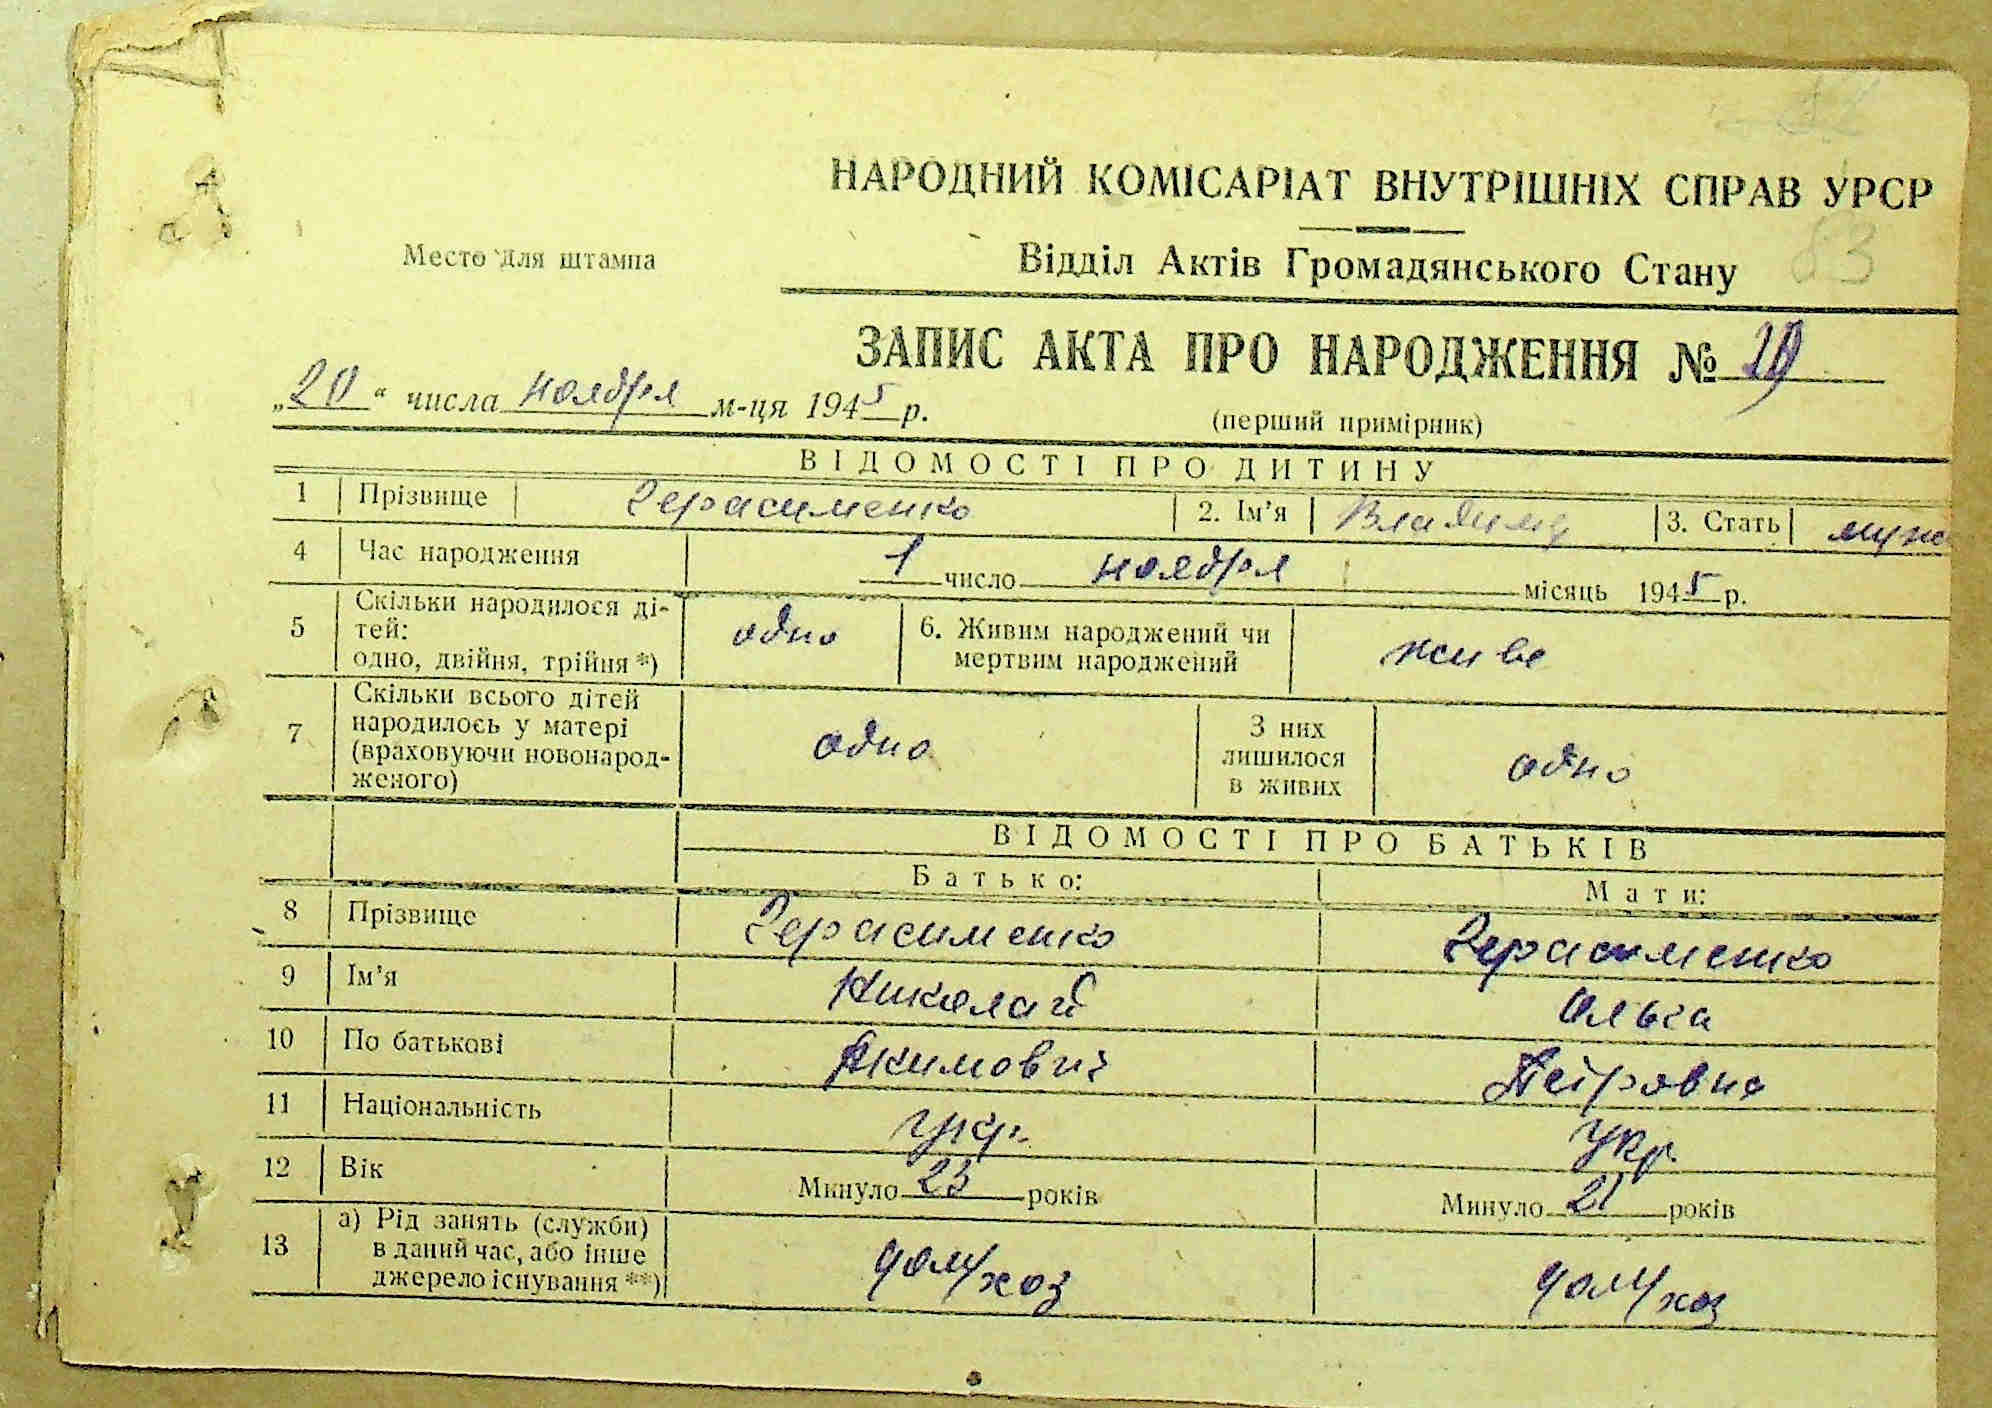 НАРОДНИЙ КОМІСАРІАТ ВНУТРІШНІХ СПРАВ УРСР
Место для штампа
Відділ Актів Громадянського Стану
83
ЗАПИС АКТА ПРО НАРОДЖЕННЯ №
„20“ числа ноября м-ця 1945 р.
(перший примірник)
ВІДОМОСТІ ПРО ДИТИНУ
1 Прізвище Герасименко 2. Ім'я Владимир 3. Стать муж
4 Час народження 1 число ноября місяць 1945 р.
5 Скільки народилося ді-
тей:
одно, двійня, трійня*) одно 6. Живим народжений чи
мертвим народжений живе
7 Скільки всього дітей
народилось у матері
(враховуючи новонарод-
женого) одно З них
лишилося
в живих одно
ВІДОМОСТІ ПРО БАТЬКІВ
Батько: Мати:
8 Прізвище Герасименко Герасименко
9 Ім'я Николай Ольга
10 По батькові Акимович Петровна
11 Національність укр. Укр.
12 Вік Минуло 23 років Минуло 21 років
13 а) Рід занять (служби)
в даний час, або інше
джерело існування**) дом/хоз дом/хоз